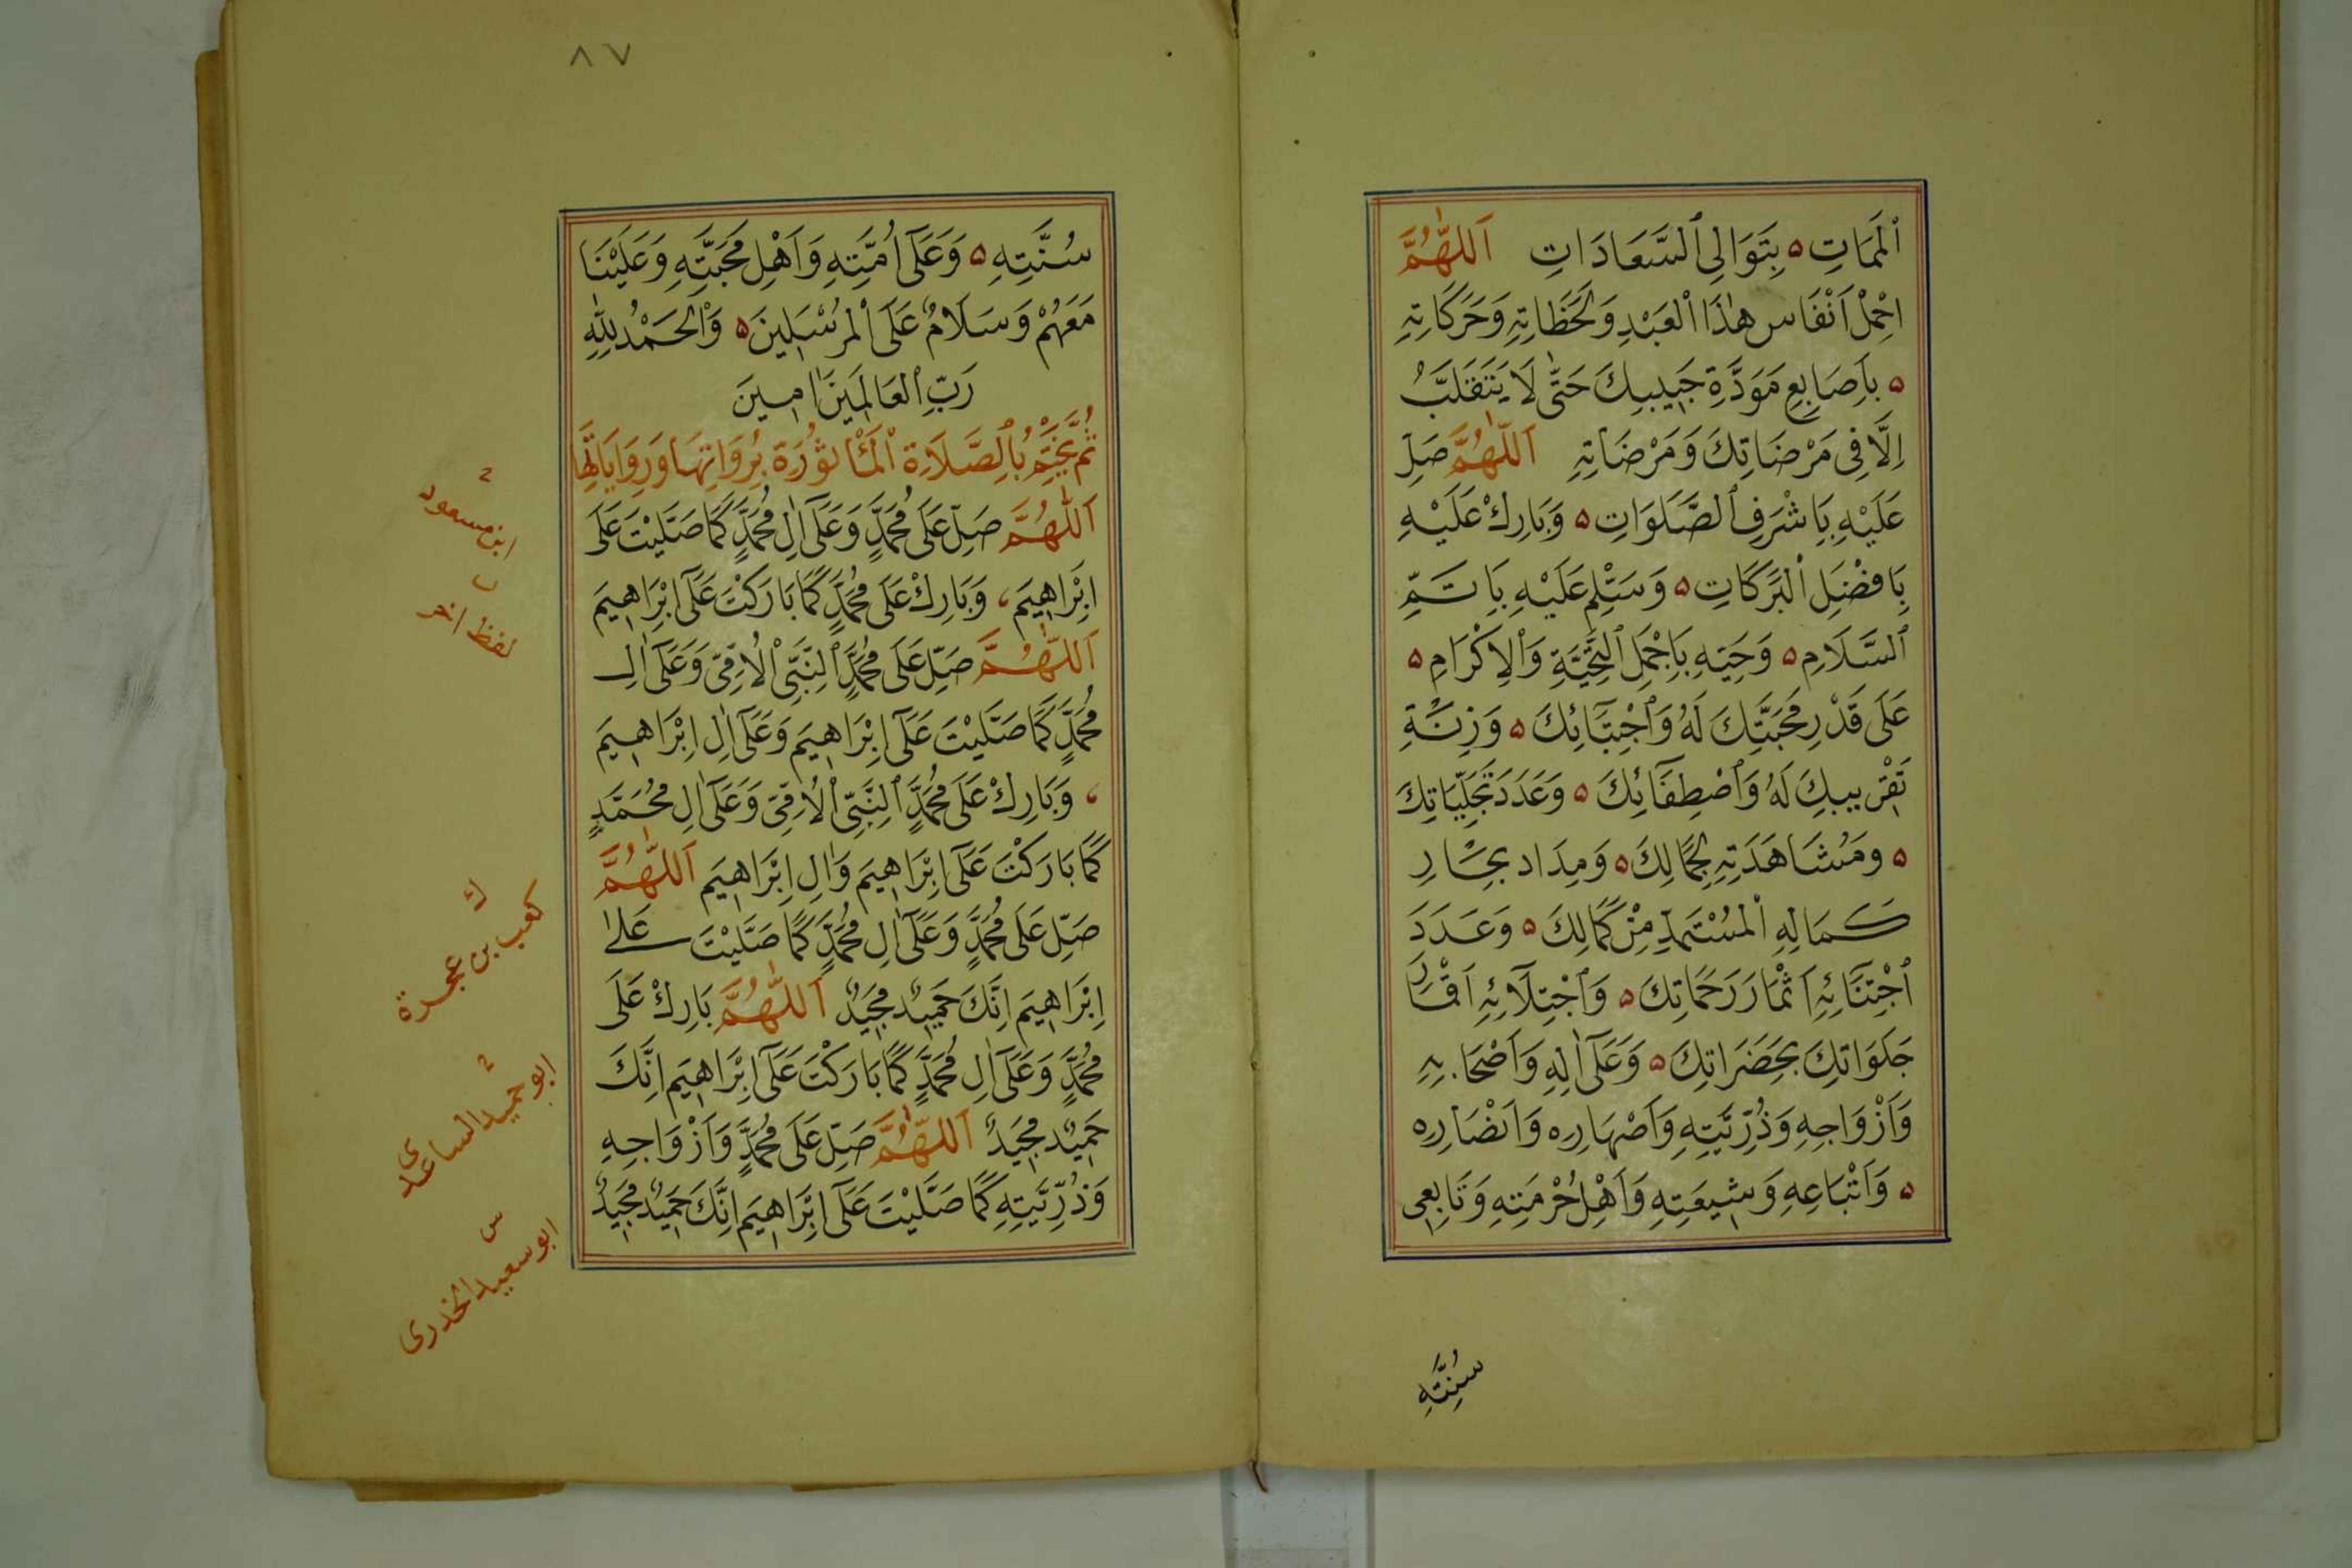 اَلْمَمَاتِ ۵ بِتَوَالِى ٱلسَّعَادَاتِ اَللّٰهُمَّ
احْمِلْ اَنْفَاسَ هٰذَا ٱلْعَبْدِ وَلَحَظَاتِهِ وَحَرَكَاتِهِ
۵ بِاَصَابِعِ مَوَدَّةِ حَبِيبِكَ حَتّٰى لَا يَتَقَلَّبُ
اِلَّا فِى مَرْضَاتِكَ وَمَرْضَاتِهِ اَللّٰهُمَّ صَلِّ
عَلَيْهِ بِاَشْرَفِ ٱلصَّلَوَاتِ ۵ وَبَارِكْ عَلَيْهِ
بِاَفْضَلِ ٱلْبَرَكَاتِ ۵ وَسَلِّمْ عَلَيْهِ بِاَتَمِّ
ٱلسَّلَامِ ۵ وَحَيِّهِ بِاَجْمَلِ ٱلتَّحِيَّةِ وَٱلْاِكْرَامِ ۵
عَلَى قَدْرِ مَحَبَّتِكَ لَهُ وَٱجْتِبَآئِكَ ۵ وَزِنَةِ
تَقْرِيبِكَ لَهُ وَٱصْطِفَآئِكَ ۵ وَعَدَدَ تَجَلِّيَاتِكَ
۵ وَمُشَاهَدَتِهِ لِجَمَالِكَ ۵ وَمِدَاد بِحَارِ
كَمَالِهِ ٱلْمُسْتَمِدِّ مِنْ كَمَالِكَ ۵ وَعَدَدَ
ٱجْتِنَآئِهِ اَثْمَارَ رَحَمَاتِكَ ۵ وَٱجْتِلَآئِهِ اَقْمَارَ
جَلَوَاتِكَ بِحَضَرَاتِكَ ۵ وَعَلَى اٰلِهِ وَاَصْحَابِهِ
وَاَزْوَاجِهِ وَذُرِّيَّتِهِ وَاَصْهَارِهِ وَاَنْصَارِهِ
۵ وَاَتْبَاعِهِ وَشِيعَتِهِ وَاَهْلِ حُرْمَتِهِ وَتَابِعِى
سُنَّتِهِ
٨٧
سُنَّتِهِ ۵ وَعَلَى اُمَّتِهِ وَاَهْلِ مَحَبَّتِهِ وَعَلَيْنَا
مَعَهُمْ وَسَلَامٌ عَلَى ٱلْمُرْسَلِينَ ۵ وَٱلْحَمْدُ لِلّٰهِ
رَبِّ ٱلْعَالَمِينَ اٰمِينَ
ثُمَّ يَخْتِمُ بِالصَّلَاةِ ٱلْمَأْثُورَةِ بِرُوَاتِهَا وَرِوَايَاتِهَا
اَللّٰهُمَّ صَلِّ عَلَى مُحَمَّدٍ وَعَلَى اٰلِ مُحَمَّدٍ كَمَا صَلَّيْتَ عَلَى
اِبْرَاهِيمَ ، وَبَارِكْ عَلَى مُحَمَّدٍ كَمَا بَارَكْتَ عَلَى اِبْرَاهِيمَ
اَللّٰهُمَّ صَلِّ عَلَى مُحَمَّدٍ ٱلنَّبِىِّ ٱلْاُمِّىِّ وَعَلَى اٰلِ
مُحَمَّدٍ كَمَا صَلَّيْتَ عَلَى اِبْرَاهِيمَ وَعَلَى اٰلِ اِبْرَاهِيمَ
، وَبَارِكْ عَلَى مُحَمَّدٍ ٱلنَّبِىِّ ٱلْاُمِّىِّ وَعَلَى اٰلِ مُحَمَّدٍ
كَمَا بَارَكْتَ عَلَى اِبْرَاهِيمَ وَاٰلِ اِبْرَاهِيمَ اَللّٰهُمَّ
صَلِّ عَلَى مُحَمَّدٍ وَعَلَى اٰلِ مُحَمَّدٍ كَمَا صَلَّيْتَ عَلَى
اِبْرَاهِيمَ اِنَّكَ حَمِيدٌ مَجِيدٌ اَللّٰهُمَّ بَارِكْ عَلَى
مُحَمَّدٍ وَعَلَى اٰلِ مُحَمَّدٍ كَمَا بَارَكْتَ عَلَى اِبْرَاهِيمَ اِنَّكَ
حَمِيدٌ مَجِيدٌ اَللّٰهُمَّ صَلِّ عَلَى مُحَمَّدٍ وَاَزْوَاجِهِ
وَذُرِّيَّتِهِ كَمَا صَلَّيْتَ عَلَى اِبْرَاهِيمَ اِنَّكَ حَمِيدٌ مَجِيدٌ
ابن مسعود
لفظ اخر
ك
كعب بن عجرة
ابو حميد الساعدى
س
ابو سعيد الخدرى